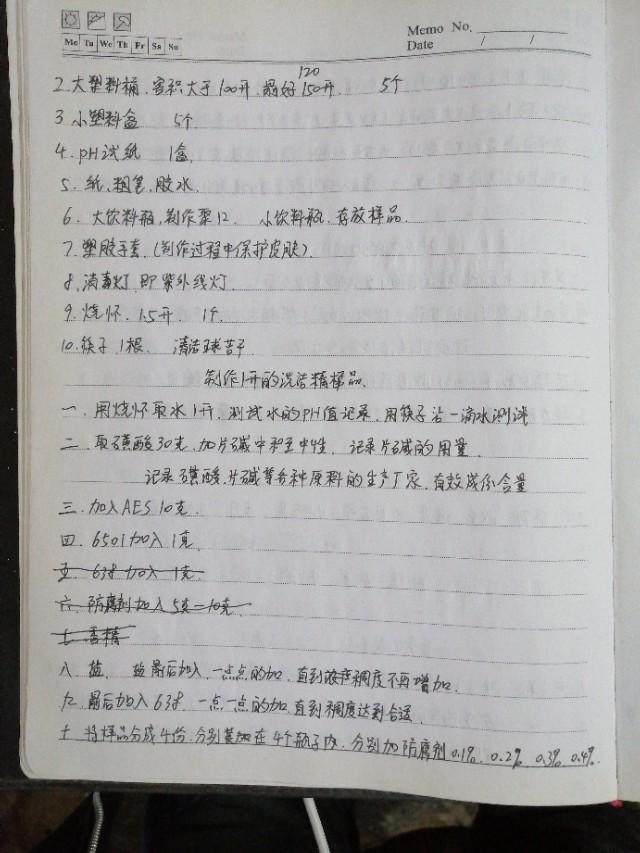 Memo No.
Mo Tu We Th Fr Sa Su
Date / /
120
2.大塑料桶.容积大于100升.最好150升. 5个
3 小塑料盒 5个
4. pH试纸 1盒.
5. 纸、粗笔、胶水.
6. 大饮料瓶,制作漏口. 小饮料瓶.存放样品.
7.塑胶手套.(制作过程中保护皮肤)
8.消毒灯 即紫外线灯.
9.烧怀. 1.5升. 1个.
10.筷子 1根. 清洁球若干
制作1升的洗洁精样品.
一. 用烧怀取水1升, 测试水的PH值记录. 用筷子沾一滴水测试
二. 取磺酸30克,加片碱中和至中性. 记录片碱的用量.
记录磺酸.片碱等各种原料的生产厂家.有效成份含量
三.加入AES 10克.
四. 6501加入 1克.
五. 638加入 1克.
六.防腐剂加入5克=10克.
七.香精
八.盐. 盐最后加入.一点点的加.直到浓度稠度不再增加.
九.最后加入638. 一点一点的加.直到稠度达到合适.
十.将样品分成4份.分别装加在4个瓶子内.分别加防腐剂0.1%. 0.2% 0.3% 0.4%.